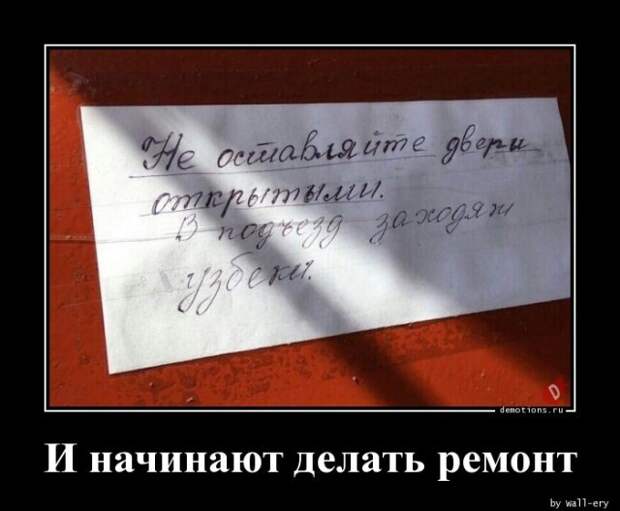 Не оставляйте двери
открытыми.
В подъезд заходят
узбеки.
demotions.ru
И начинают делать ремонт
by wall-ery